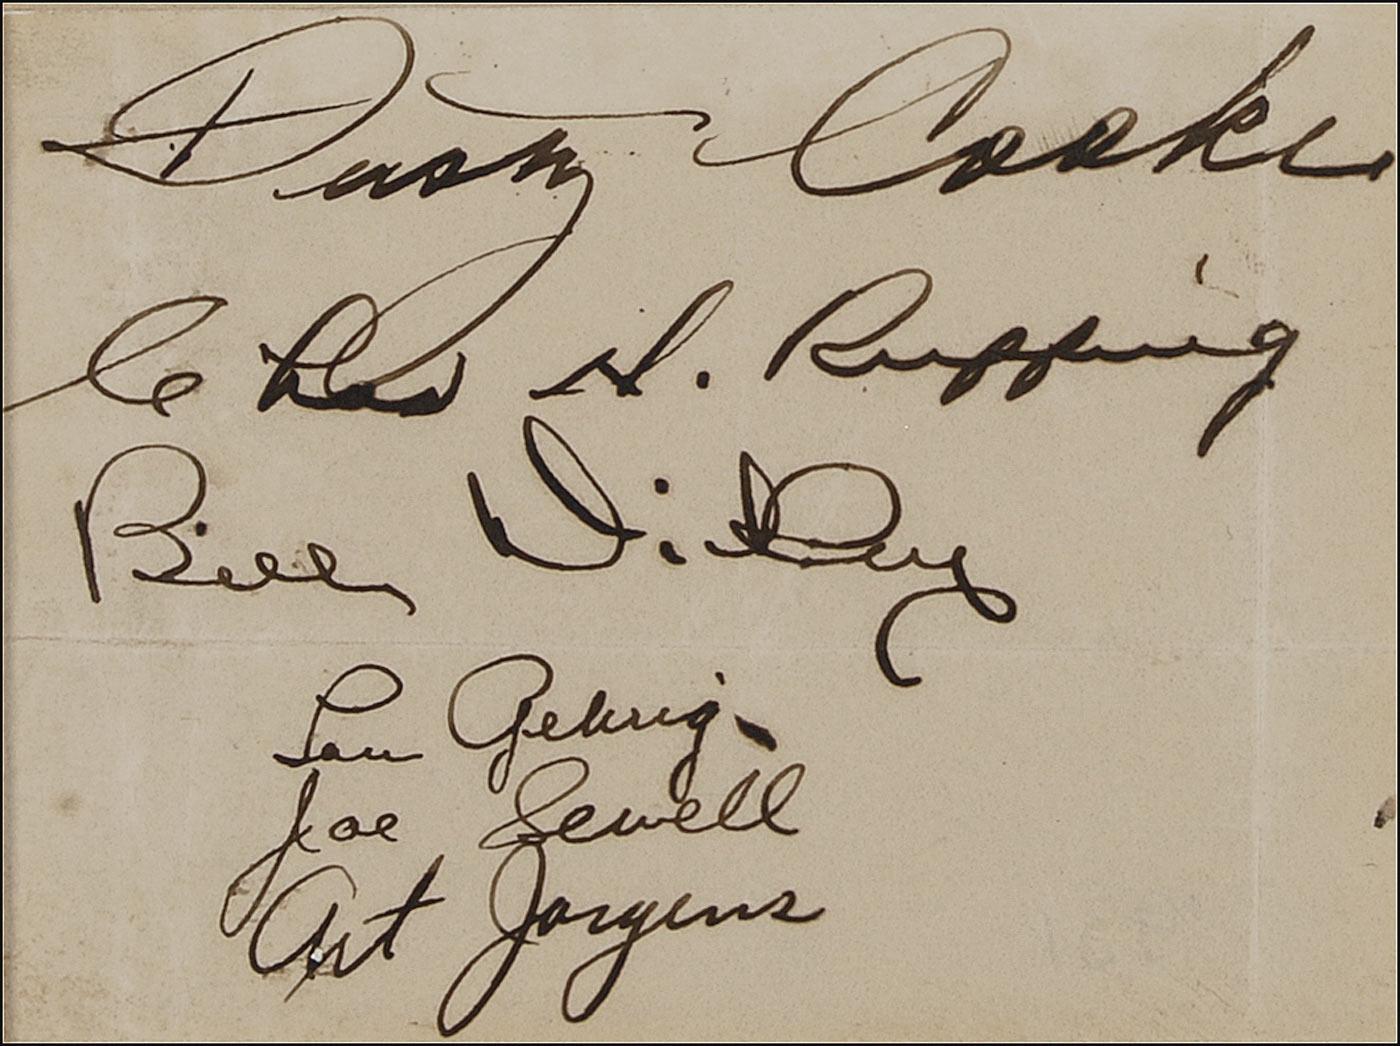 Dusty Cooke
Chas H. Ruffing
Bill Dickey
Lou Gehrig
Joe Sewell
Art Jorgens